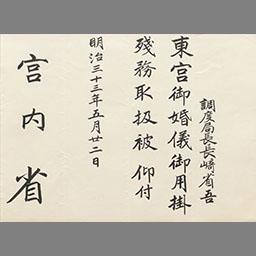 調度局長長﨑省吾
東宮御婚儀御用掛
殘務取扱被 仰付
明治三十三年五月廿二日
宮内省